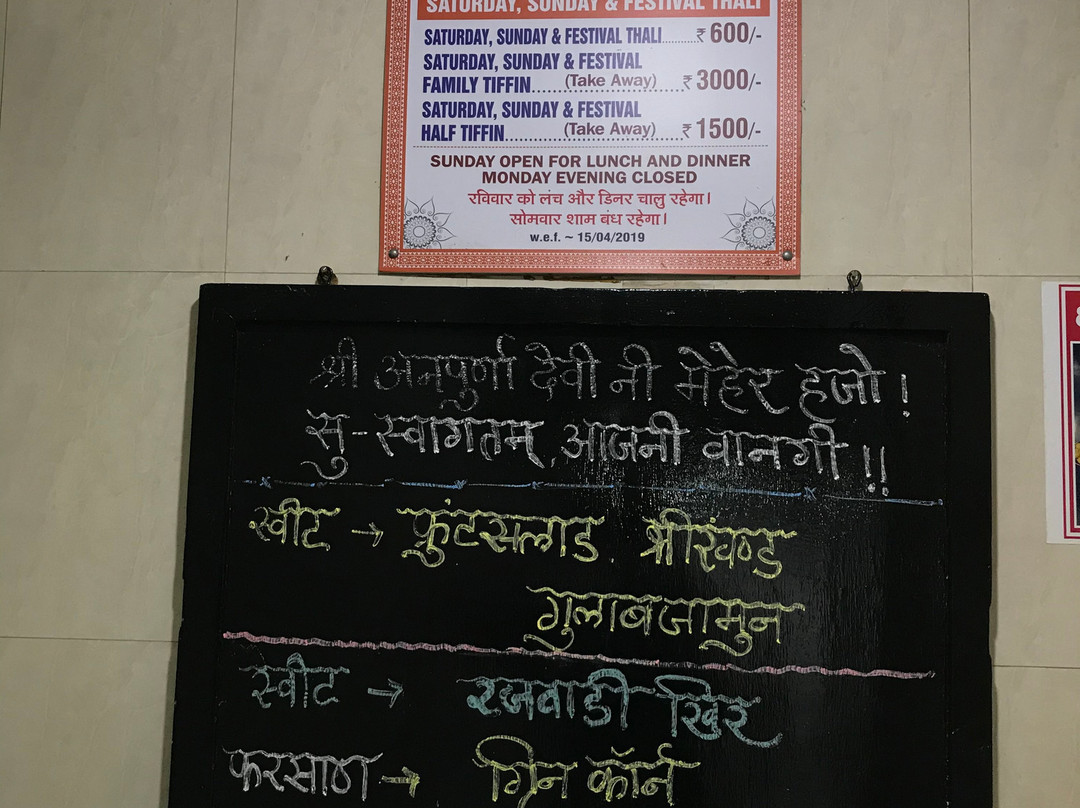 SATURDAY, SUNDAY & FESTIVAL THALI
SATURDAY, SUNDAY & FESTIVAL THALI.......... ₹ 600/-
SATURDAY, SUNDAY & FESTIVAL
FAMILY TIFFIN...... (Take Away) ...... ₹ 3000/-
SATURDAY, SUNDAY & FESTIVAL
HALF TIFFIN.......... (Take Away) ...... ₹ 1500/-
SUNDAY OPEN FOR LUNCH AND DINNER
MONDAY EVENING CLOSED
रविवार को लंच और डिनर चालु रहेगा।
सोमवार शाम बंध रहेगा।
w.e.f. ~ 15/04/2019
श्री अनपुर्णा देवी नी मेहेर हजो!
सु-स्वागतम्, आजनी वानगी!!
स्वीट → फ्रुंटसलाड, श्रीखंण्ड
गुलाबजामुन
स्वीट → रजवाडी खिर
फरसाण → ग्रिन कॉर्न